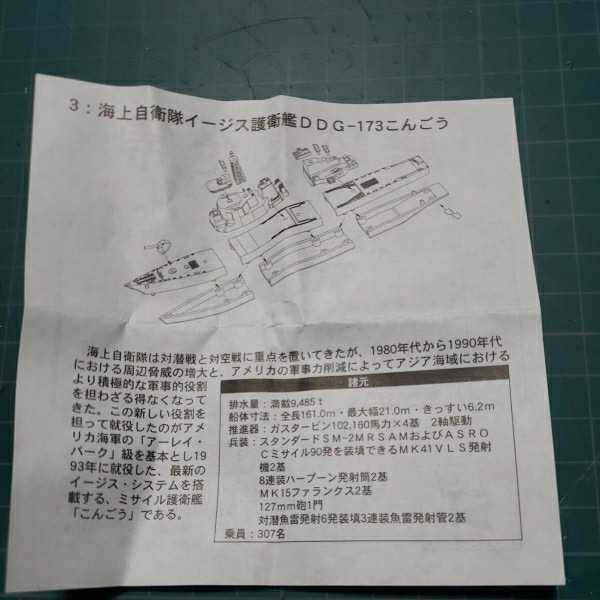 3：海上自衛隊イージス護衛艦ＤＤＧ-173こんごう
海上自衛隊は対潜戦と対空戦に重点を置いてきたが、1980年代から1990年代
における周辺脅威の増大と、アメリカの軍事力削減によってアジア海域における
より積極的な軍事的役割
を担わざる得なくなって
きた。この新しい役割を
担って就役したのがアメ
リカ海軍の「アーレイ・
バーク」級を基本とし19
93年に就役した、最新の
イージス・システムを搭
載する、ミサイル護衛艦
「こんごう」である。
諸元
排水量：満載9,485ｔ
船体寸法：全長161.0m・最大幅21.0m・きっすい6.2m
推進器：ガスタービン102,160馬力×4基　2軸駆動
兵装：スタンダードＳＭ-２ＭＲＳＡＭおよびＡＳＲＯ
Ｃミサイル90発を装填できるＭＫ41ＶＬＳ発射
機2基
8連装ハープーン発射筒2基
ＭＫ15ファランクス2基
127mm砲1門
対潜魚雷発射6発装填3連装魚雷発射管2基
乗員：307名